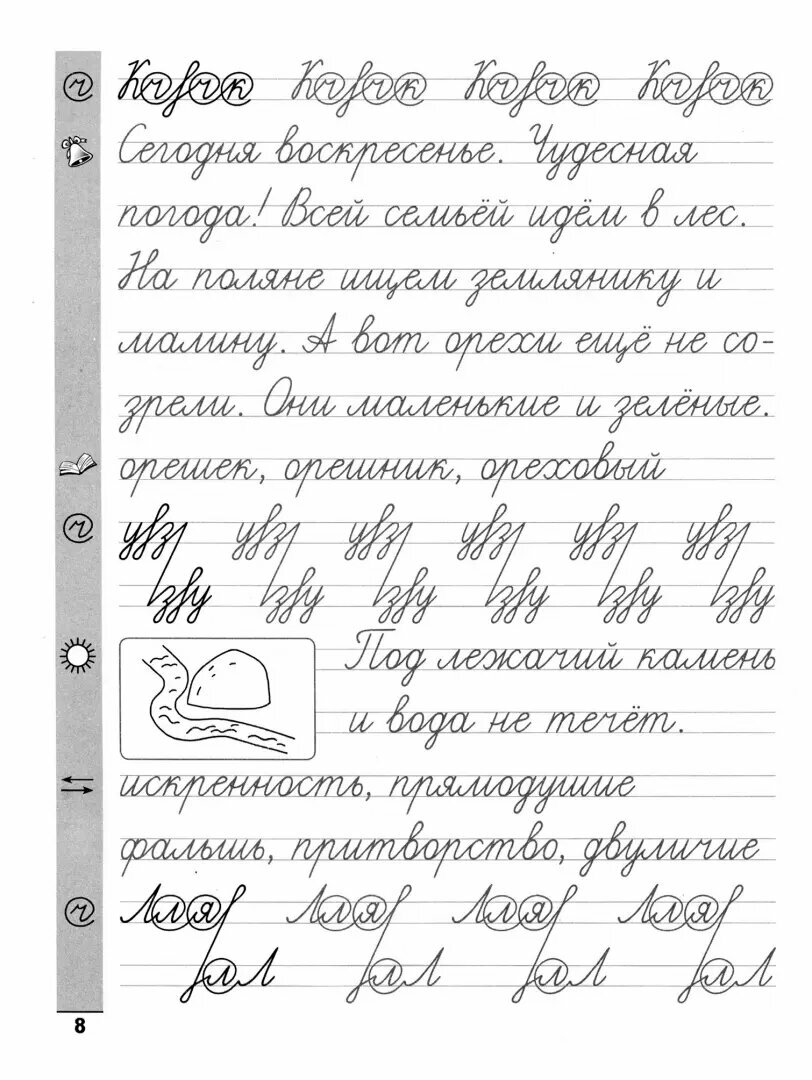 Сегодня воскресенье. Чудесная
погода! Всей семьёй идём в лес.
На поляне ищем землянику и
малину. А вот орехи ещё не со-
зрели. Они маленькие и зелёные.
орешек, орешник, ореховый
увз увз увз увз увз увз
зву зву зву зву зву зву
Под лежачий камень
и вода не течёт.
искренность, прямодушие
фальшь, притворство, двуличие
8